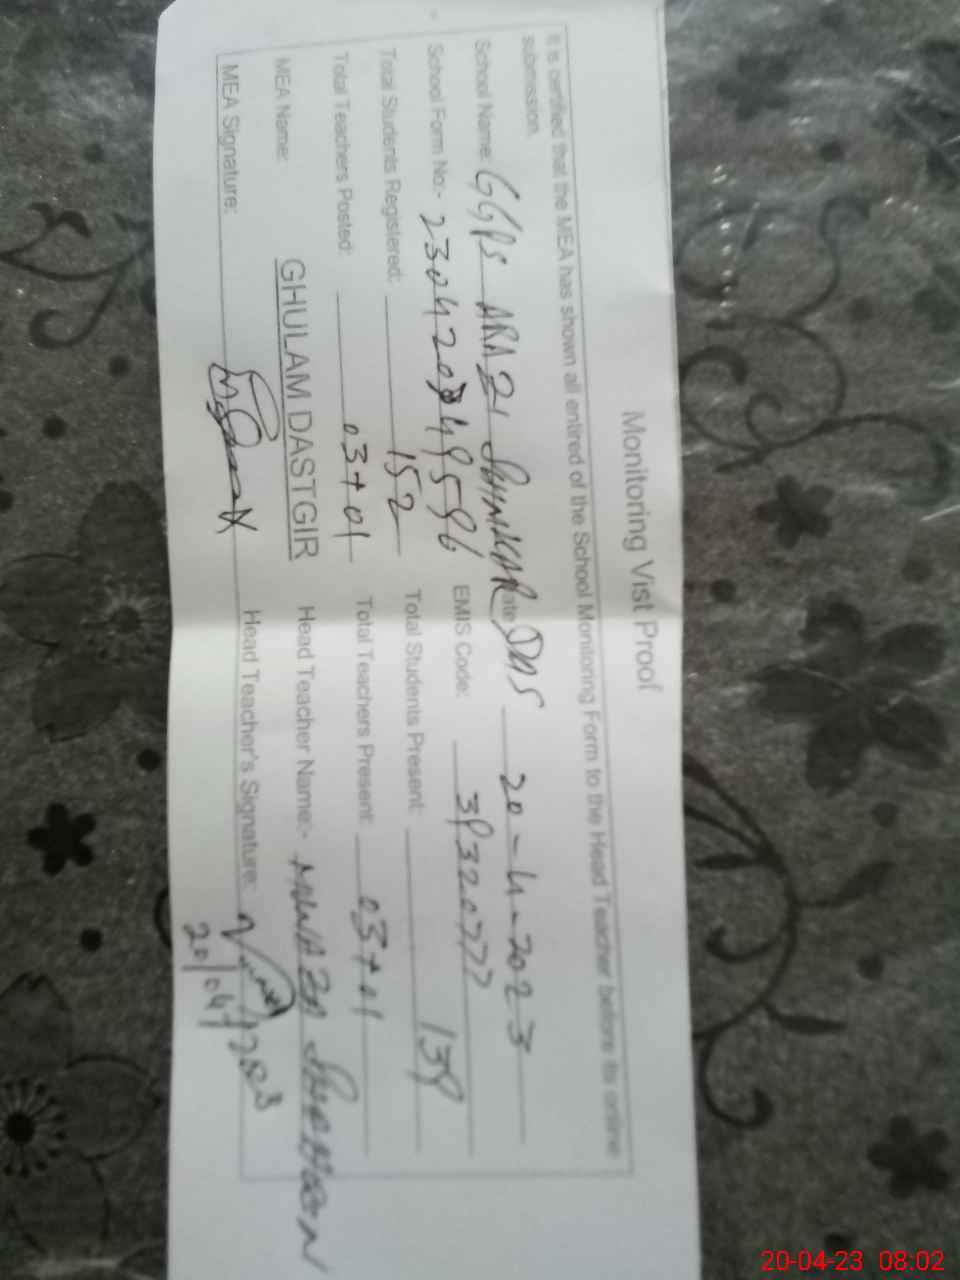 Monitoring Vist Proof
It is certified that the MEA has shown all entired of the School Monitoring Form to the Head Teacher before its online
submission.
School Name: GGPS ARAZI DAS ate 20-4-2023
School Form No:- EMIS Code:
Total Students Registered: 152 Total Students Present: 139
Total Teachers Posted: 03+01 Total Teachers Present: 03+01
MEA Name: GHULAM DASTGIR Head Teacher Name:- SHAHEEN
MEA Signature: Head Teacher's Signature:
20/04/2023
20-04-23 08:02